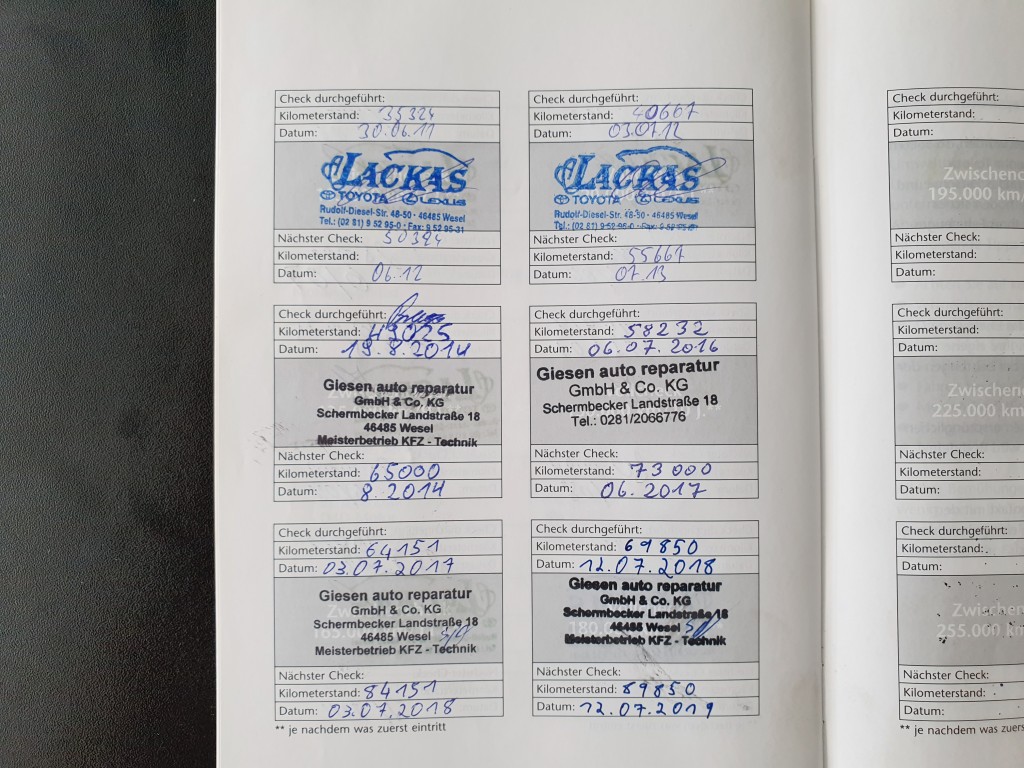 Check durchgeführt:
Kilometerstand: 35324
Datum: 30.06.11
LACKAS
TOYOTA LEXUS
Rudolf-Diesel-Str. 48-50 · 46485 Wesel
Tel.: (02 81) 9 52 95-0 · Fax: 9 52 95-31
Nächster Check: 50324
Kilometerstand:
Datum: 06.12
Check durchgeführt:
Kilometerstand: 40667
Datum: 03.07.12
LACKAS
TOYOTA LEXUS
Rudolf-Diesel-Str. 48-50 · 46485 Wesel
Tel.: (02 81) 9 52 95-0 · Fax: 9 52 95-31
Nächster Check:
Kilometerstand: 55667
Datum: 07.13
Check durchgeführt:
Kilometerstand: 49025
Datum: 19.8.2014
Giesen auto reparatur
GmbH & Co. KG
Schermbecker Landstraße 18
46485 Wesel
Meisterbetrieb KFZ - Technik
Nächster Check:
Kilometerstand: 65000
Datum: 8.2014
Check durchgeführt:
Kilometerstand: 58232
Datum: 06.07.2016
Giesen auto reparatur
GmbH & Co. KG
Schermbecker Landstraße 18
Tel.: 0281/2066776
Nächster Check:
Kilometerstand: 73000
Datum: 06.2017
Check durchgeführt:
Kilometerstand: 64151
Datum: 03.07.2017
Giesen auto reparatur
GmbH & Co. KG
Schermbecker Landstraße 18
46485 Wesel
Meisterbetrieb KFZ - Technik
Nächster Check:
Kilometerstand: 84151
Datum: 03.07.2018
Check durchgeführt:
Kilometerstand: 69850
Datum: 12.07.2018
Giesen auto reparatur
GmbH & Co. KG
Schermbecker Landstraße 18
46485 Wesel
Meisterbetrieb KFZ - Technik
Nächster Check:
Kilometerstand: 89850
Datum: 12.07.2019
** je nachdem was zuerst eintritt
Check durchgeführt:
Kilometerstand:
Datum:
195.000 km
Nächster Check:
Kilometerstand:
Datum:
Check durchgeführt:
Kilometerstand:
Datum:
225.000 km
Nächster Check:
Kilometerstand:
Datum:
Check durchgeführt:
Kilometerstand:
Datum:
255.000 km
Nächster Check:
Kilometerstand:
Datum:
** je nachdem was zuers